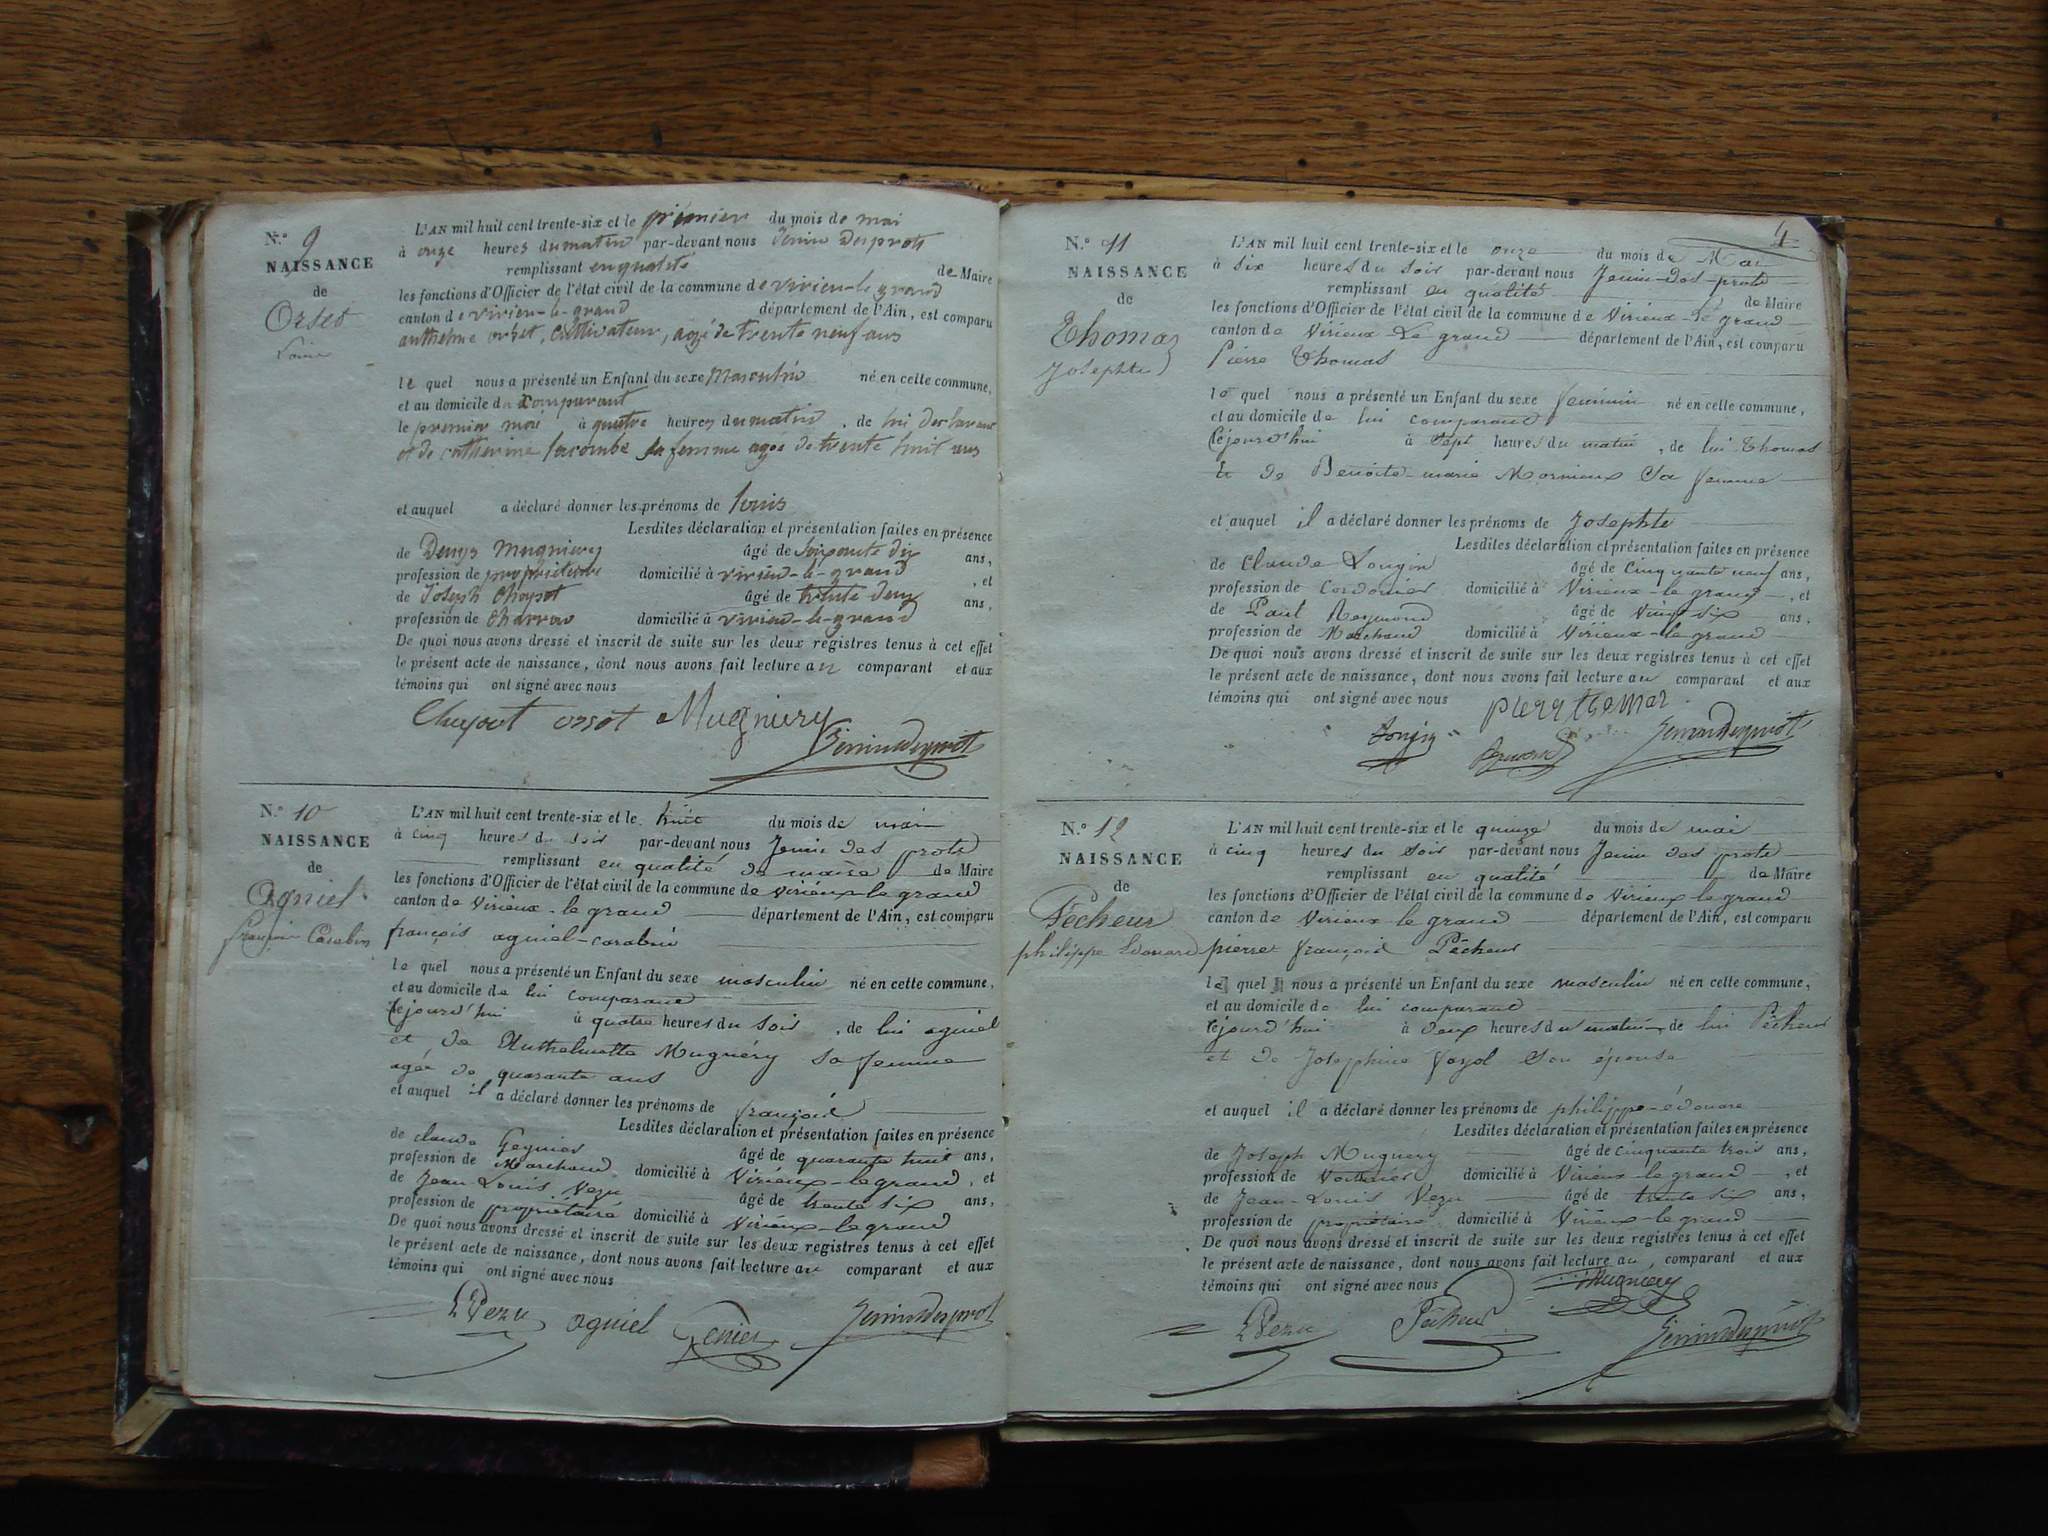 N.° 9
NAISSANCE
de
Orset
Louis
L'AN mil huit cent trente-six et le premier du mois de mai
à onze heures du matin par-devant nous Jenin Desprots
remplissant en qualité de Maire
les fonctions d'Officier de l'état civil de la commune de virieu-le-grand
canton de virieu-le-grand département de l'Ain, est comparu
anthelme orset, cultivateur, agé de trente neuf ans
le quel nous a présenté un Enfant du sexe Masculin né en cette commune,
et au domicile du comparant
le premier mai à quatre heures du matin, de lui declarant
et de catherine lacombe sa femme agee de trente huit ans
et auquel a déclaré donner les prénoms de louis
Lesdites déclaration et présentation faites en présence
de Denys Mugniery âgé de soixante dix ans,
profession de propriétaire domicilié à virieu-le-grand, et
de Joseph Chapot âgé de trente deux ans,
profession de charron domicilié à virieu-le-grand
De quoi nous avons dressé et inscrit de suite sur les deux registres tenus à cet effet
le présent acte de naissance, dont nous avons fait lecture au comparant et aux
témoins qui ont signé avec nous
orset Mugniery
JeninDesprots
N.° 10
NAISSANCE
de
Agniel
françois Carabin
L'AN mil huit cent trente-six et le huit du mois de mai
à cinq heures du soir par-devant nous Jenin des prots
remplissant en qualité de maire de Maire
les fonctions d'Officier de l'état civil de la commune de Virieux-le grand
canton de Virieux-le grand département de l'Ain, est comparu
françois agniel-carabin
le quel nous a présenté un Enfant du sexe masculin né en cette commune,
et au domicile de lui comparant
cejourd'hui à quatre heures du soir, de lui agniel
et de Anthelmette Mugniéry sa femme
agée de quarante ans
et auquel il a déclaré donner les prénoms de françois
Lesdites déclaration et présentation faites en présence
de claude âgé de quarante huit ans,
profession de Marchand domicilié à Virieux-le grand, et
de Jean-Louis Vezu âgé de trente six ans,
profession de propriétaire domicilié à Virieux-le grand
De quoi nous avons dressé et inscrit de suite sur les deux registres tenus à cet effet
le présent acte de naissance, dont nous avons fait lecture au comparant et aux
témoins qui ont signé avec nous
LVezu agniel JeninDesprots
4
N.° 11
NAISSANCE
de
Thomas
Josephte
L'AN mil huit cent trente-six et le onze du mois de Mai
à six heures du soir par-devant nous Jenin-des-prots
remplissant en qualité de Maire
les fonctions d'Officier de l'état civil de la commune de Virieux-le grand
canton de Virieux-Le grand département de l'Ain, est comparu
Pierre Thomas
le quel nous a présenté un Enfant du sexe féminin né en cette commune,
et au domicile de lui comparant
cejourd'hui à sept heures du matin, de lui Thomas
Et de Benoite-marie Mornieux Sa femme
et auquel il a déclaré donner les prénoms de Josephte
Lesdites déclaration et présentation faites en présence
de Claude Longin âgé de cinquante neuf ans,
profession de Cordonier domicilié à Virieux-le grand, et
de Paul Reymond âgé de Vingt six ans,
profession de Marchand domicilié à Virieux-le grand
De quoi nous avons dressé et inscrit de suite sur les deux registres tenus à cet effet
le présent acte de naissance, dont nous avons fait lecture au comparant et aux
témoins qui ont signé avec nous
Longin JeninDesprots
N.° 12
NAISSANCE
de
Pêcheur
philippe Edouard
L'AN mil huit cent trente-six et le quinze du mois de mai
à cinq heures du soir par-devant nous Jenin des prots
remplissant en qualité de Maire
les fonctions d'Officier de l'état civil de la commune de Virieux le grand
canton de Virieux le grand département de l'Ain, est comparu
pierre françois Pêcheur
le quel nous a présenté un Enfant du sexe masculin né en cette commune,
et au domicile de lui comparant
cejourd'hui à deux heures du matin, de lui Pêcheur
et de Josephine son épouse
et auquel il a déclaré donner les prénoms de philippe-édouard
Lesdites déclaration et présentation faites en présence
de Joseph Mugniéry âgé de cinquante trois ans,
profession de Voiturier domicilié à Virieux-le grand, et
de Jean-Louis Vezu âgé de trente six ans,
profession de propriétaire domicilié à Virieux-le grand
De quoi nous avons dressé et inscrit de suite sur les deux registres tenus à cet effet
le présent acte de naissance, dont nous avons fait lecture au comparant et aux
témoins qui ont signé avec nous
Mugniery
LVezu Pêcheur JeninDesprots